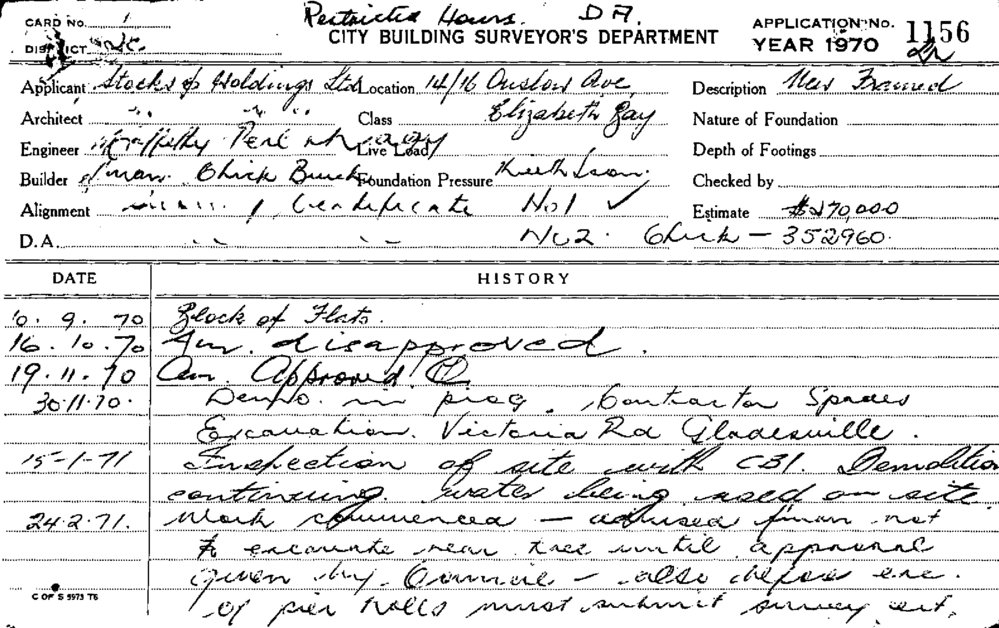 CARD NO. 1
Restricted Hours. DA.
CITY BUILDING SURVEYOR'S DEPARTMENT
APPLICATION No. 1156
DISTRICT
YEAR 1970
Applicant Stocks & Holdings Ltd Location 14/16 Onslow Ave, Description New Framed
Architect " " " " Class Elizabeth Bay Nature of Foundation
Engineer Live Load Depth of Footings
Builder Chick Foundation Pressure Checked by
Alignment Certificate No1 ✓ Estimate $270,000
D.A. " " No2. Chick - 352960.
DATE HISTORY
10.9.70 Block of Flats.
16.10.70 Am. disapproved.
19.11.70 Am. Approved.
30.11.70. Demo. in prog. Contractor Spades
Excavation. Victoria Rd Gladesville.
15-1-71 Inspection of site with CBI. Demolition
continuing. water being used on site.
24.2.71. Work commenced - advised fman not
to excavate near tree until approval
given by Council - also before exc.
of pier holes must submit survey cert.
C OF S 5973 T5